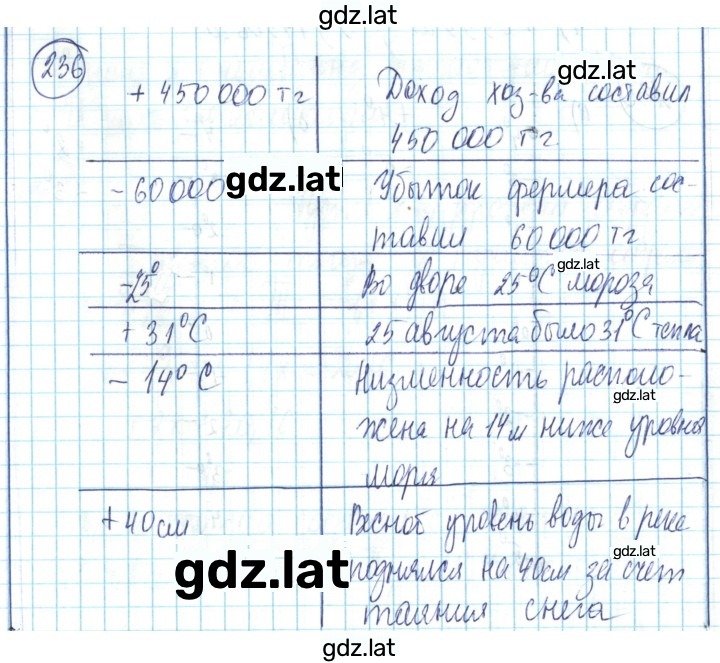 gdz.lat
236
+ 450 000 тг
Доход хоз-ва составил
gdz.lat
450 000 тг
- 60 000
gdz.lat
Убыток фермера сос-
gdz.lat
тавил 60 000 тг
gdz.lat
-25°
Во дворе 25°C мороза
+ 31°C
25 августа было 31°C тепла
gdz.lat
- 14° C
Низменность располо-
gdz.lat
жена на 14 м ниже уровня
моря
+ 40 см
Весной уровень воды в реке
gdz.lat
gdz.lat
поднялся на 40 см за счет
таяния снега
gdz.lat